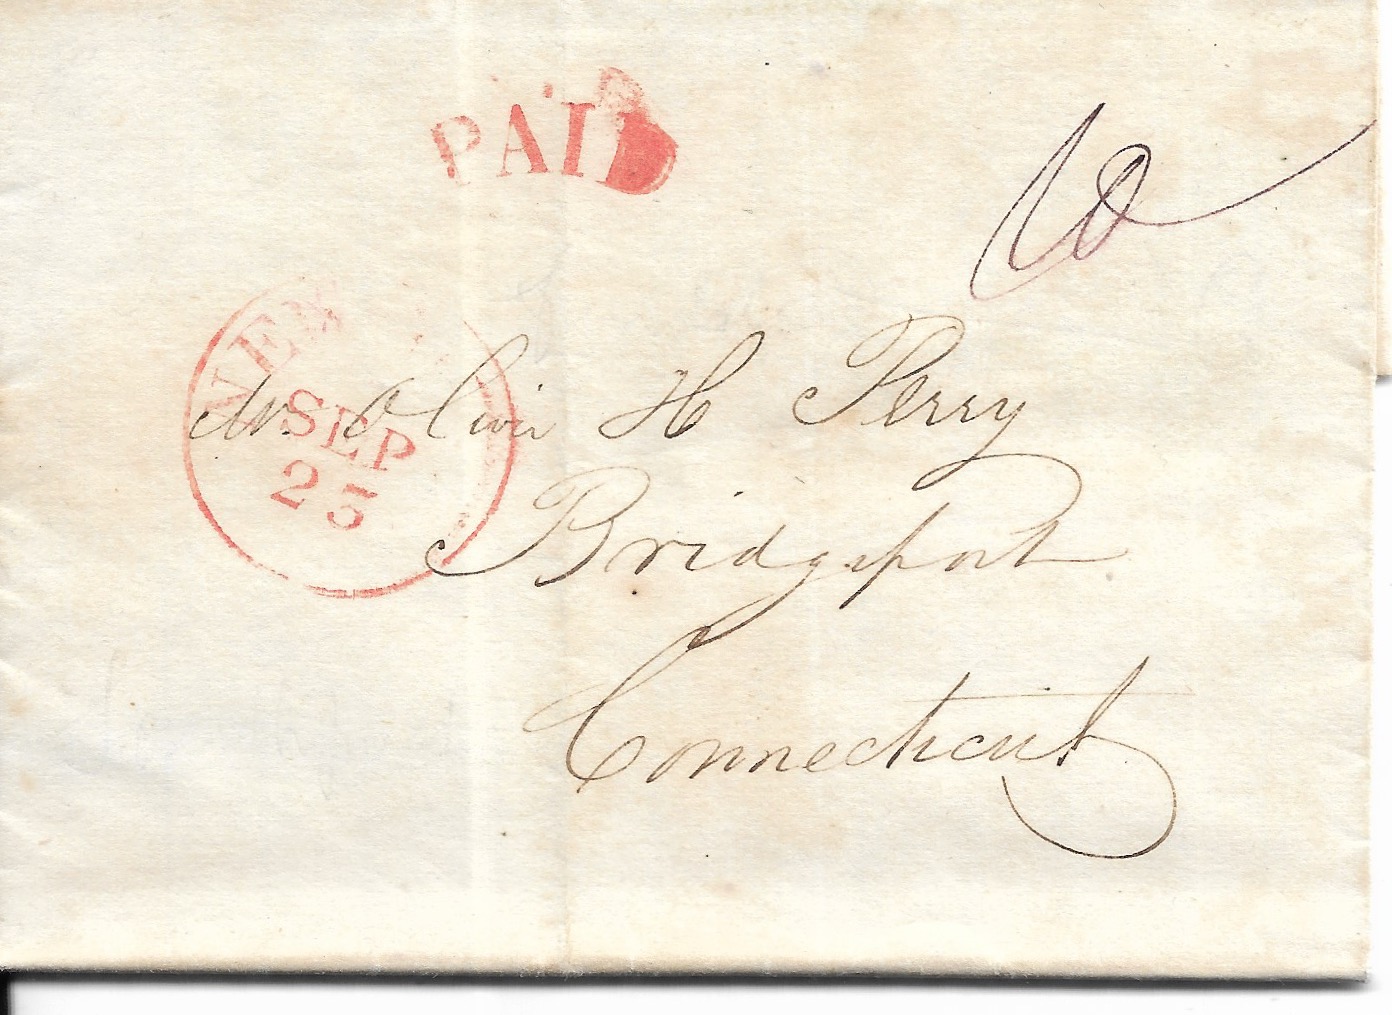 PAID
10
NEW
SEP
25
Mr. Oliver H Perry
Bridgeport
Connecticut